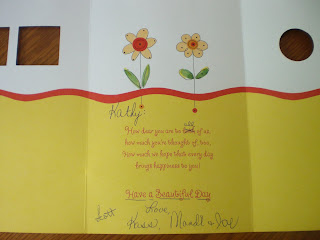 Kathy:
How dear you are to all of us,
how much you're thought of, too,
How much we hope that every day
brings happiness to you!
Have a Beautiful Day
Love,
Kass, Mandl & Joe